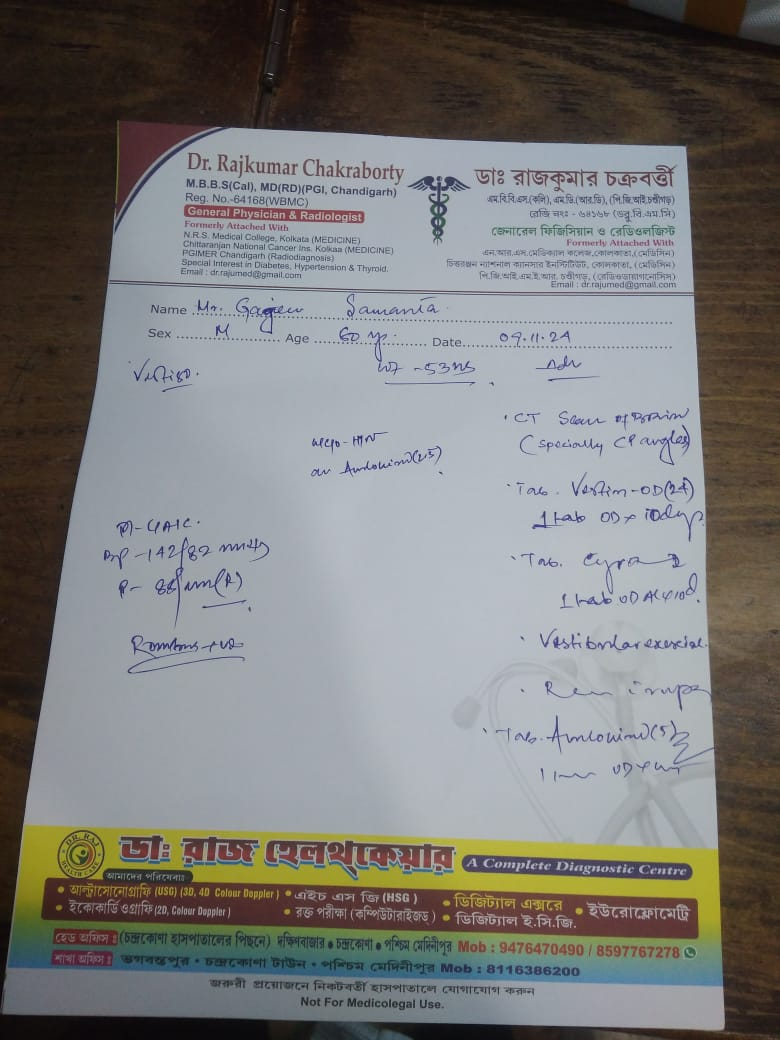 Dr. Rajkumar Chakraborty
M.B.B.S(Cal), MD(RD)(PGI, Chandigarh)
Reg. No.-64168(WBMC)
General Physician & Radiologist
Formerly Attached With
N.R.S. Medical College, Kolkata (MEDICINE)
Chittaranjan National Cancer Ins. Kolkaa (MEDICINE)
PGIMER Chandigarh (Radiodiagnosis)
Special Interest in Diabetes, Hypertension & Thyroid.
Email : dr.rajumed@gmail.com
ডাঃ রাজকুমার চক্রবর্ত্তী
এম.বি.বি.এস(কলি), এম.ডি.(আর.ডি), (পি.জি.আই,চণ্ডীগড়)
রেজি নংঃ - ৬৪১৬৮ (ডব্লু.বি.এম.সি)
জেনারেল ফিজিসিয়ান ও রেডিওলজিস্ট
Formerly Attached With
এন.আর.এস.মেডিক্যাল কলেজ,কোলকাতা,(মেডিসিন)
চিত্তরঞ্জন ন্যাশনাল ক্যানসার ইনস্টিটিউট, কোলকাতা, (মেডিসিন)
পি.জি.আই.এম.ই.আর, চণ্ডীগড়, (রেডিওডায়াগনোসিস)
Email : dr.rajumed@gmail.com
Name Mr. Samanta
Sex M Age 60 yr. Date 09.11.24
Vertigo.
Wt - 53
Adv
CT Scan of Brain
(specially CP angles)
HTN
on (2.5)
Tab. Vertin-OD(24)
1 tab OD x 10 days
BP -142/82 mmHg
P- 88/
Tab.
1 tab OD
Vestibular
Tab. (5)
OD
ডাঃ রাজ হেলথকেয়ার
A Complete Diagnostic Centre
DR. RAJ
HEALTH CARE
আমাদের পরিষেবাঃ
• আল্ট্রাসোনোগ্রাফি (USG) (3D, 4D Colour Doppler) • এইচ এস জি (HSG) • ডিজিট্যাল এক্সরে • ইউরোফ্লোমেট্রি
• ইকোকার্ডিওগ্রাফি (2D, Colour Doppler) • রক্ত পরীক্ষা (কম্পিউটারাইজড্) • ডিজিট্যাল ই.সি.জি.
হেড অফিস : (চন্দ্রকোণা হাসপাতালের পিছনে) দক্ষিণবাজার • চন্দ্রকোণা • পশ্চিম মেদিনীপুর Mob : 9476470490 / 8597767278
শাখা অফিস : ভগবন্তপুর • চন্দ্রকোণা টাউন • পশ্চিম মেদিনীপুর Mob : 8116386200
জরুরী প্রয়োজনে নিকটবর্তী হাসপাতালে যোগাযোগ করুন
Not For Medicolegal Use.